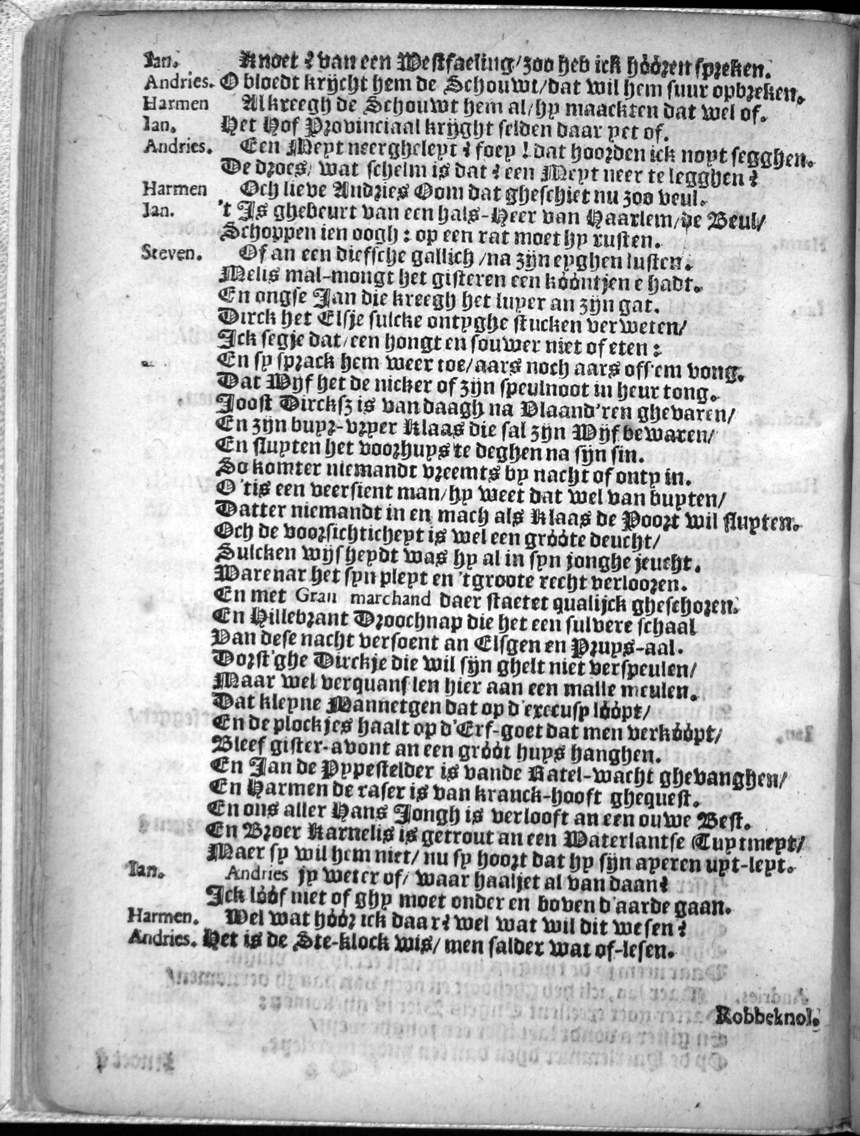 Ian. Knoet? van een Westfaeling/zoo heb ick hóóren spreken.
Andries. O bloedt krijcht hem de Schouwt/dat wil hem suur opbreken.
Harmen Al kreegh de Schouwt hem al/hy maackten dat wel of.
Ian. Het Hof Provinciaal krijght selden daar yet of.
Andries. Een Meyt neergheleyt? foey! dat hoorden ick noyt segghen.
De droes/ wat schelm is dat? een Meyt neer te legghen?
Harmen Och lieve Andries Oom dat gheschiet nu zoo veul.
Ian. 't Is ghebeurt van een hals-Heer van Haarlem/de Beul/
Schoppen ien oogh: op een rat moet hy rusten.
Steven. Of an een diefsche gallich/na zijn eyghen lusten.
Melis mal-mongt het gisteren een kóóntjen e hadt.
En ongse Jan die kreegh het luyer an zijn gat.
Dirck het Elsje sulcke ontyghe stucken verweten/
Ick segje dat/een hongt en souwer niet of eten:
En sy sprack hem weer toe/aars noch aars off'em vong.
Dat Wijf het de nicker of zijn speulnoot in heur tong.
Joost Dircksz is van daagh na Vlaand'ren ghevaren/
En zijn buyr-vryer Klaas die sal zijn Wijf bewaren/
En sluyten het voorhuys te deghen na sijn sin.
So komter niemandt vreemts by nacht of onty in.
O 'tis een veersient man/hy weet dat wel van buyten/
Datter niemandt in en mach als Klaas de Poort wil sluyten.
Och de voorsichticheyt is wel een gróóte deucht/
Sulcken wijsheydt was hy al in syn jonghe jeucht.
Warenar het syn pleyt en 'tgroote recht verlooren.
En met Gran marchand daer staetet qualijck gheschoren.
En Hillebrant Droochnap die het een sulvere schaal
Van dese nacht versoent an Elsgen en Pruys-aal.
Dorst'ghe Dirckje die wil sijn ghelt niet verspeulen/
Maar wel verquanslen hier aan een malle meulen.
Dat kleyne Mannetgen dat op d'execusy lóópt/
En de plockjes haalt op d'Erf-goet dat men verkóópt/
Bleef gister-avont an een gróót huys hanghen.
En Jan de Pypestelder is vande Ratel-wacht ghevanghen/
En Harmen de raser is van kranck-hooft ghequest.
En ons aller Hans Jongh is verlooft an een ouwe Best.
En Broer Karnelis is getrout an een Waterlantse Tuytmeyt/
Maer sy wil hem niet/ nu sy hoort dat hy sijn ayeren uyt-leyt.
Ian. Andries jy weter of/ waar haaljet al van daan?
Ick lóóf niet of ghy moet onder en boven d'aarde gaan.
Harmen. Wel wat hóór ick daar? wel wat wil dit wesen?
Andries. Het is de Ste-klock wis/ men salder wat of-lesen.
Robbeknol.